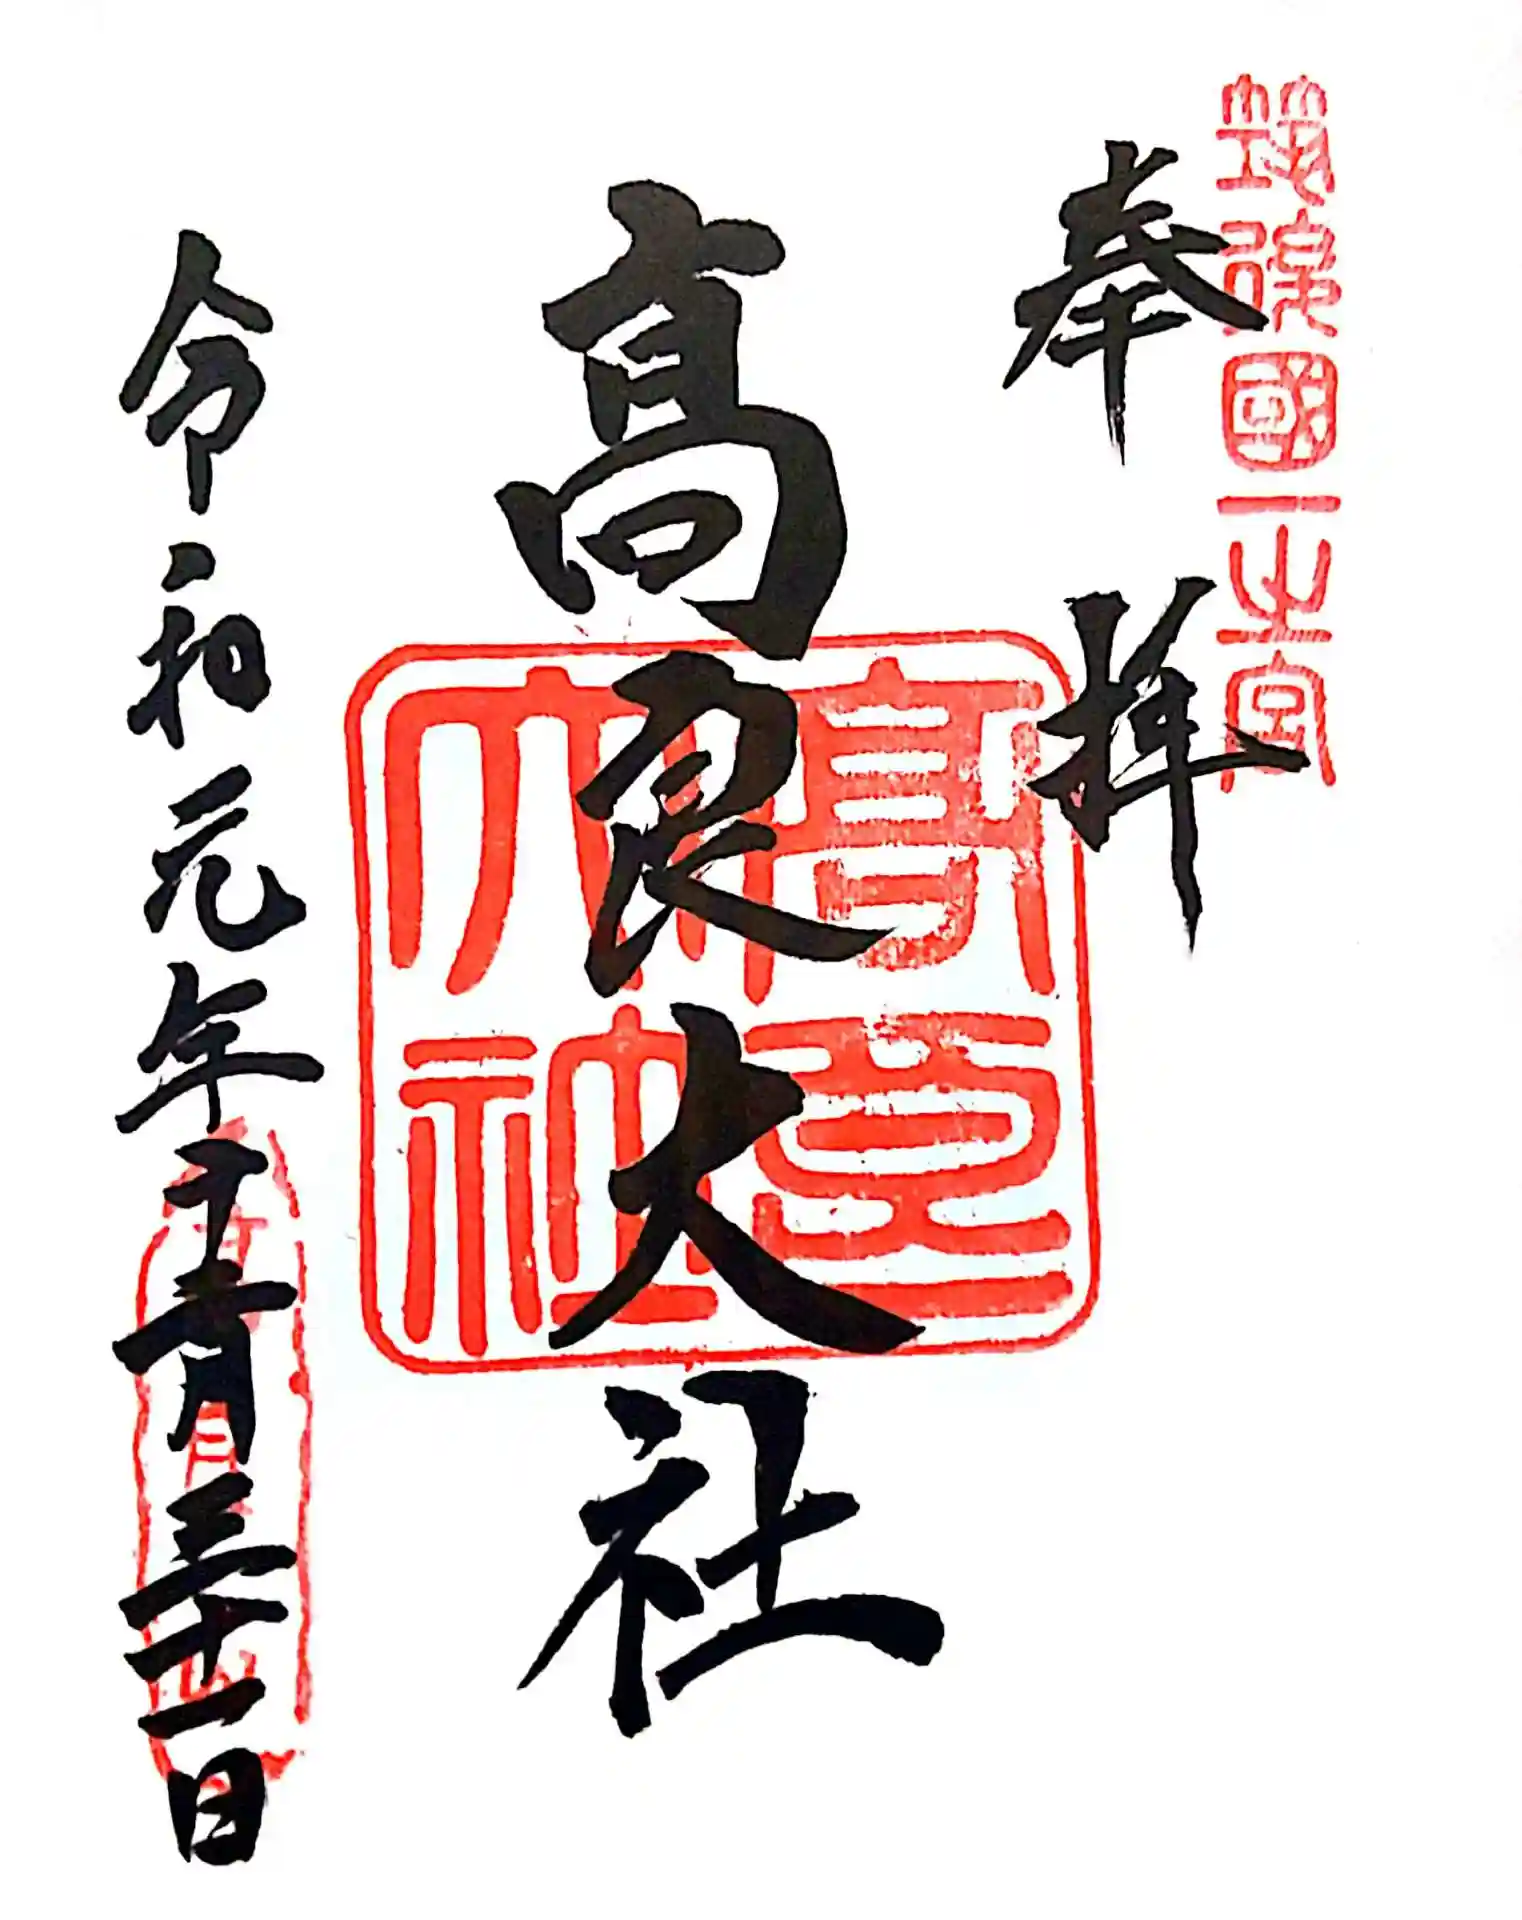 筑後國一之宮
奉拝
高良大社
高良大社
令和元年十二月三十一日